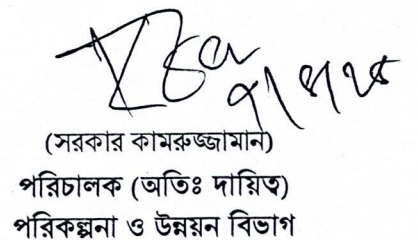 (সরকার কামরুজ্জামান)
পরিচালক (অতিঃ দায়িত্ব)
পরিকল্পনা ও উন্নয়ন বিভাগ